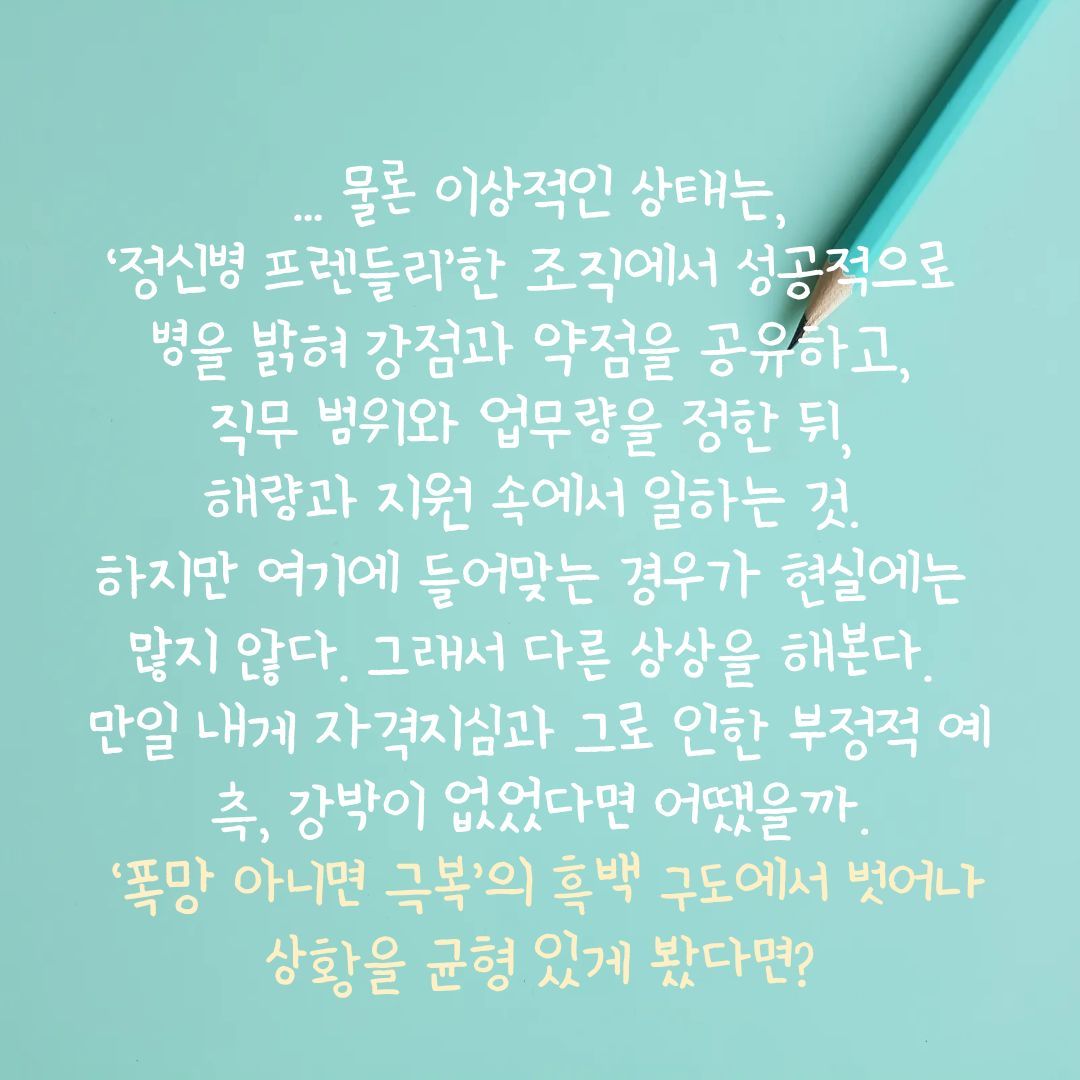 ... 물론 이상적인 상태는,
‘정신병 프렌들리’한 조직에서 성공적으로
병을 밝혀 강점과 약점을 공유하고,
직무 범위와 업무량을 정한 뒤,
해량과 지원 속에서 일하는 것.
하지만 여기에 들어맞는 경우가 현실에는
많지 않다. 그래서 다른 상상을 해본다.
만일 내게 자격지심과 그로 인한 부정적 예
측, 강박이 없었다면 어땠을까.
‘폭망 아니면 극복’의 흑백 구도에서 벗어나
상황을 균형 있게 봤다면?